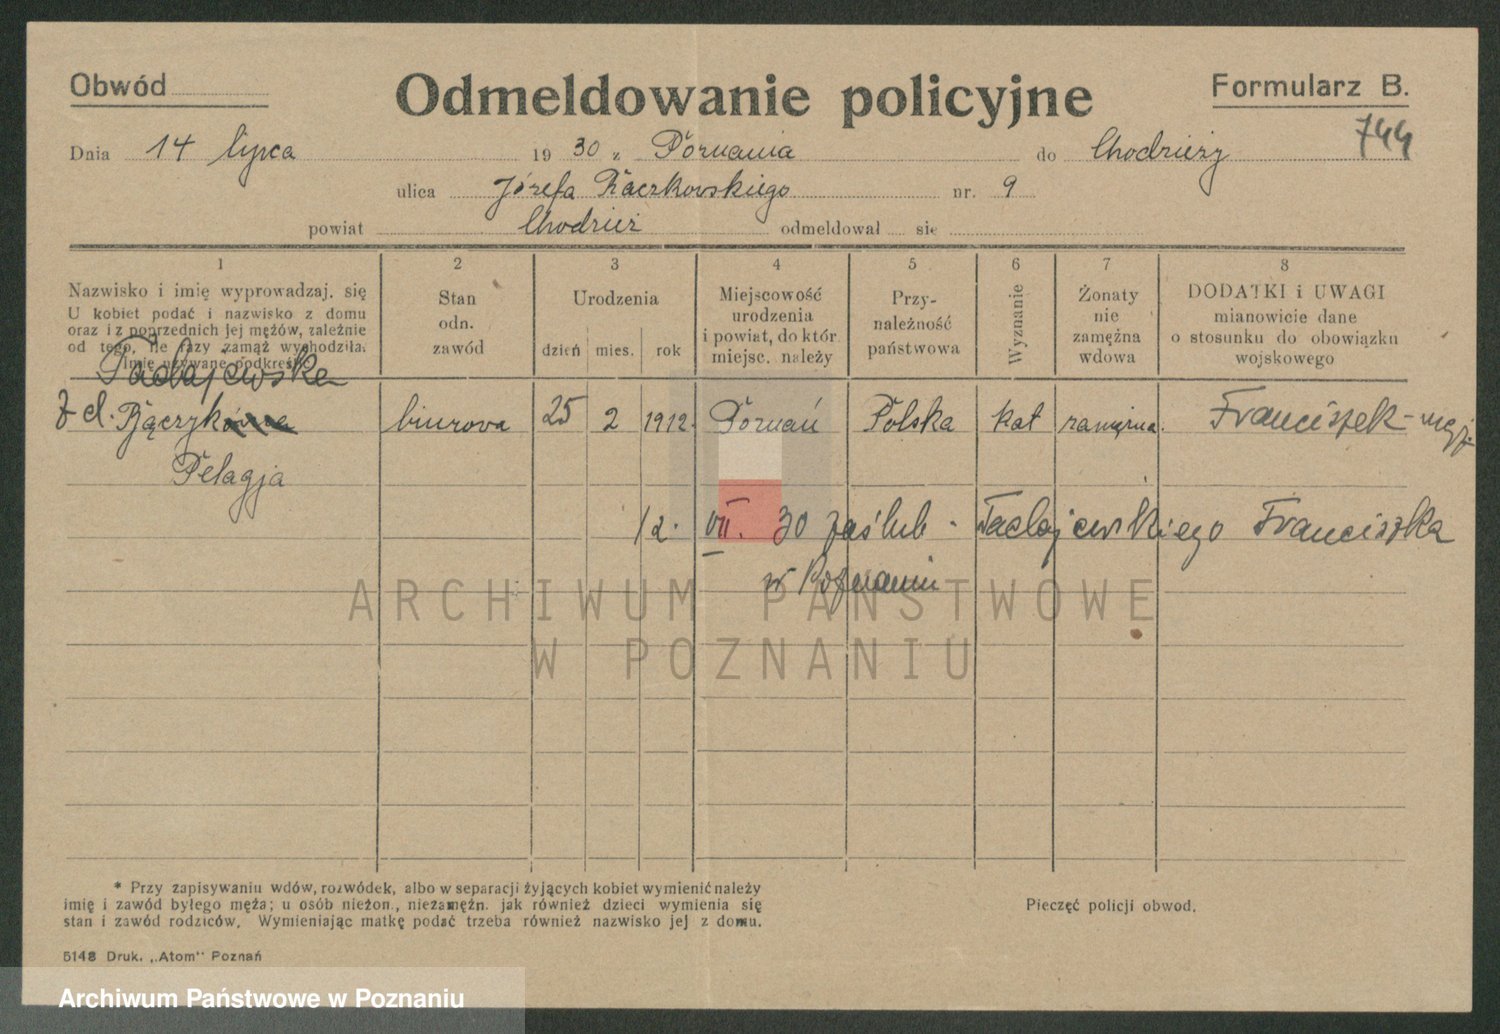 Obwód
Odmeldowanie policyjne
Formularz B.
744
Dnia 14 lipca 1930 z Poznania do Chodzieży
ulica Józefa Raczkowskiego nr. 9
powiat Chodzież odmeldował się
1 2 3 4 5 6 7 8
Nazwisko i imię wyprowadzaj. się
U kobiet podać i nazwisko z domu
oraz i z poprzednich jej mężów, zależnie
od tego, ile razy zamąż wychodziła.
Imię używane podkreślić
Stan
odn.
zawód
Urodzenia
dzień mies. rok
Miejscowość
urodzenia
i powiat, do któr
miejsc. należy
Przy-
należność
państwowa
Wyznanie
Żonaty
nie
zamężna
wdowa
DODATKI i UWAGI
mianowicie dane
o stosunku do obowiązku
wojskowego
Tadajewska
z d. Bączyk biurowa 25 2 1912 Poznań Polska kat zamężna. Franciszek - mąż
Pelagja
12. VII. 30 zaślub. Tadajewskiego Franciszka
w Poznaniu
ARCHIWUM PAŃSTWOWE
W POZNANIU
* Przy zapisywaniu wdów, rozwódek, albo w separacji żyjących kobiet wymienić należy
imię i zawód byłego męża; u osób nieżon., niezamężn. jak również dzieci wymienia się
stan i zawód rodziców. Wymieniając matkę podać trzeba również nazwisko jej z domu.
Pieczęć policji obwod.
5148 Druk. „Atom" Poznań
Archiwum Państwowe w Poznaniu